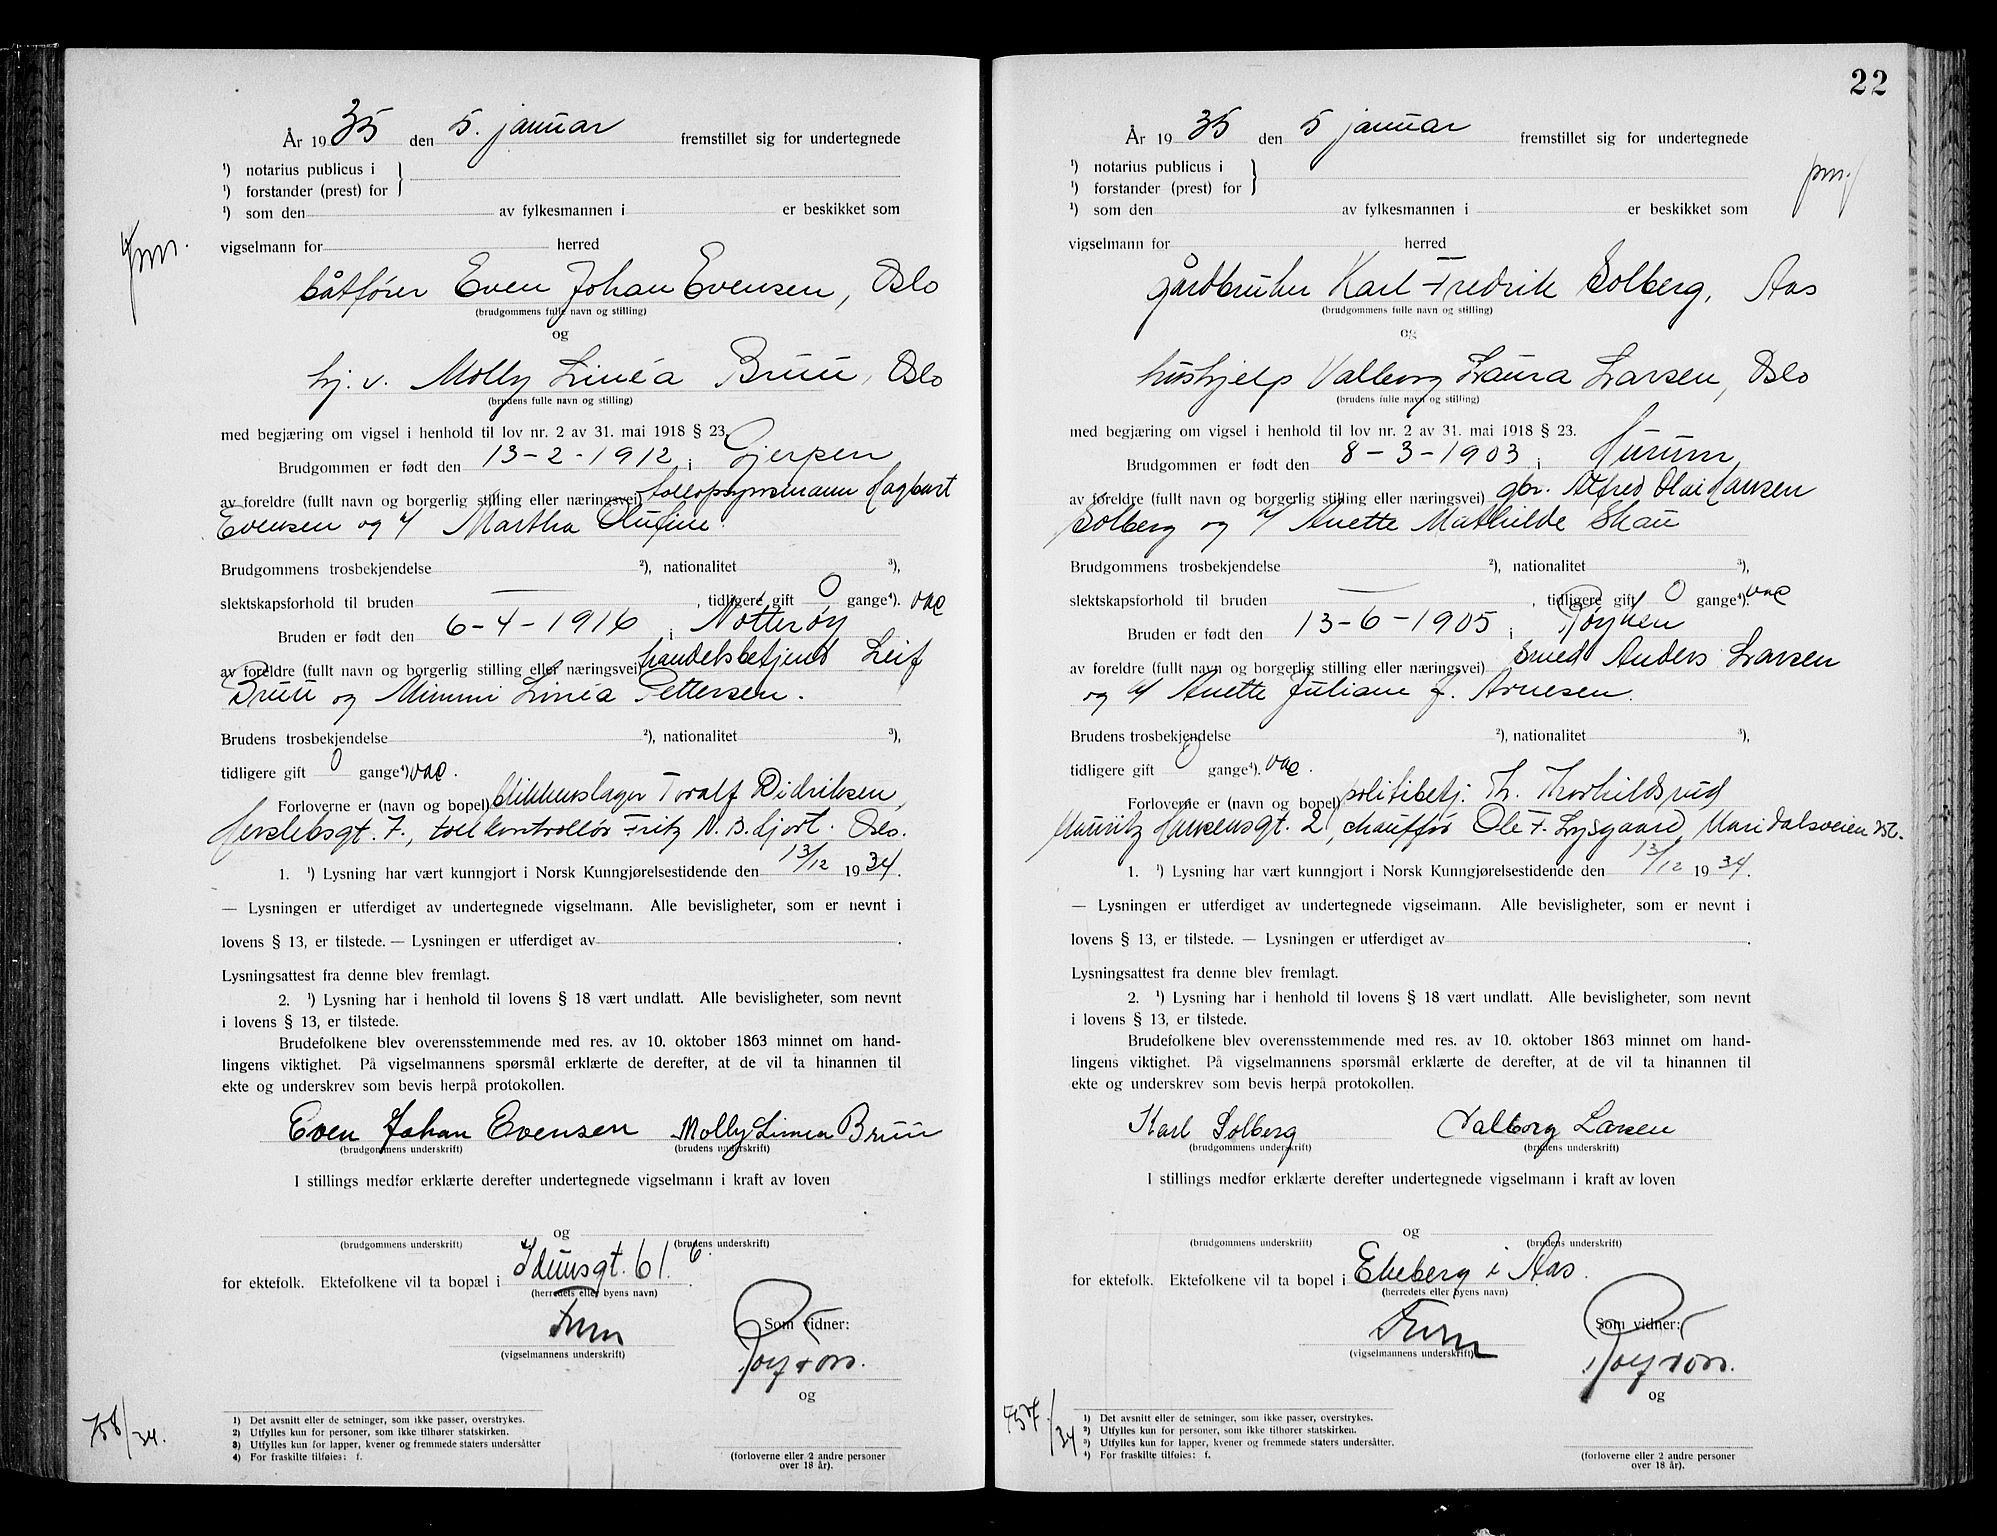 År 1935 den 5. januar fremstillet sig for undertegnede
¹) notarius publicus i
¹) forstander (prest) for
¹) som den av fylkesmannen i er beskikket som
vigselmann for herred
båtfører Even Johan Evensen, Oslo
(brudgommens fulle navn og stilling)
og
hj. v. Molly Linéa Bruu, Oslo
(brudens fulle navn og stilling)
med begjæring om vigsel i henhold til lov nr. 2 av 31. mai 1918 § 23.
Brudgommen er født den 13-2-1912 i Gjerpen
av foreldre (fullt navn og borgerlig stilling eller næringsvei) Hagbart
Evensen og Martha Olufine.
Brudgommens trosbekjendelse ²), nationalitet ³),
slektskapsforhold til bruden — , tidligere gift 0 gange⁴). vac
Bruden er født den 6-4-1916 i Nötterøy
av foreldre (fullt navn og borgerlig stilling eller næringsvei) handelsbetjent Leif
Bruu og Mimmi Linéa Pettersen.
Brudens trosbekjendelse ²), nationalitet ³),
tidligere gift 0 gange⁴) vac.
Forloverne er (navn og bopel) blikkenslager Toralf Didriksen,
Herslebsgt. 7., tollkontrollør Fritz N. B. Hjort. Oslo.
1. ¹) Lysning har vært kunngjort i Norsk Kunngjørelsestidende den 13/12 1934.
— Lysningen er utferdiget av undertegnede vigselmann. Alle bevisligheter, som er nevnt i
lovens § 13, er tilstede. — Lysningen er utferdiget av .
Lysningsattest fra denne blev fremlagt.
2. ¹) Lysning har i henhold til lovens § 18 vært undlatt. Alle bevisligheter, som nevnt
i lovens § 13, er tilstede.
Brudefolkene blev overensstemmende med res. av 10. oktober 1863 minnet om hand-
lingens viktighet. På vigselmannens spørsmål erklærte de derefter, at de vil ta hinannen til
ekte og underskrev som bevis herpå protokollen.
Even Johan Evensen Molly Linea Bruu
(brudgommens underskrift) (brudens underskrift)
I stillings medfør erklærte derefter undertegnede vigselmann i kraft av loven
og
(brudgommens underskrift) (brudens underskrift)
for ektefolk. Ektefolkene vil ta bopæl i Idunsgt. 6
(herredets eller byens navn)
Som vidner:
(vigselmannens underskrift)
og
758/34.
1) Det avsnitt eller de setninger, som ikke passer, overstrykes.
2) Utfylles kun for personer, som ikke tilhører statskirken.
3) Utfylles kun for lapper, kvener og fremmede staters undersåtter
4) For fraskilte tilføies: f.
(forloverne eller 2 andre personer
over 18 år).
22
År 1935 den 5 januar fremstillet sig for undertegnede
¹) notarius publicus i
¹) forstander (prest) for
¹) som den av fylkesmannen i er beskikket som
vigselmann for herred
gårdbruker Karl Fredrik Solberg, Aas
(brudgommens fulle navn og stilling)
og
hushjelp Valborg Laura Larsen, Oslo
(brudens fulle navn og stilling)
med begjæring om vigsel i henhold til lov nr. 2 av 31. mai 1918 § 23.
Brudgommen er født den 8-3-1903 i Hurum
av foreldre (fullt navn og borgerlig stilling eller næringsvei) gbr. Alfred Olai Hansen
Solberg og Anette Mathilde Skau
Brudgommens trosbekjendelse ²), nationalitet ³),
slektskapsforhold til bruden — , tidligere gift 0 gange⁴). vac
Bruden er født den 13-6-1905 i Røyken
av foreldre (fullt navn og borgerlig stilling eller næringsvei) smed Anders Larsen
og Anette Juliane f. Arnesen.
Brudens trosbekjendelse ²), nationalitet ³),
tidligere gift 0 gange⁴). vac.
Forloverne er (navn og bopel) politibetj. Th. Thorhildsrud
Mauritz Hansensgt. 2, chauffør Ole F. Lysgaard, Maridalsveien
1. ¹) Lysning har vært kunngjort i Norsk Kunngjørelsestidende den 13/12 1934.
— Lysningen er utferdiget av undertegnede vigselmann. Alle bevisligheter, som er nevnt i
lovens § 13, er tilstede. — Lysningen er utferdiget av .
Lysningsattest fra denne blev fremlagt.
2. ¹) Lysning har i henhold til lovens § 18 vært undlatt. Alle bevisligheter, som nevnt
i lovens § 13, er tilstede.
Brudefolkene blev overensstemmende med res. av 10. oktober 1863 minnet om hand-
lingens viktighet. På vigselmannens spørsmål erklærte de derefter, at de vil ta hinannen til
ekte og underskrev som bevis herpå protokollen.
Karl Solberg Valborg Larsen
(brudgommens underskrift) (brudens underskrift)
I stillings medfør erklærte derefter undertegnede vigselmann i kraft av loven
og
(brudgommens underskrift) (brudens underskrift)
for ektefolk. Ektefolkene vil ta bopel i Ekeberg i Aas.
(herredets eller byens navn)
Som vidner:
(vigselmannens underskrift)
og
757/34
1) Det avsnitt eller de setninger, som ikke passer, overstrykes.
2) Utfylles kun for personer, som ikke tilhører statskirken.
3) Utfylles kun for lapper, kvener og fremmede staters undersåtter.
4) For fraskilte tilføies: f.
(forloverne eller 2 andre personer
over 18 år).